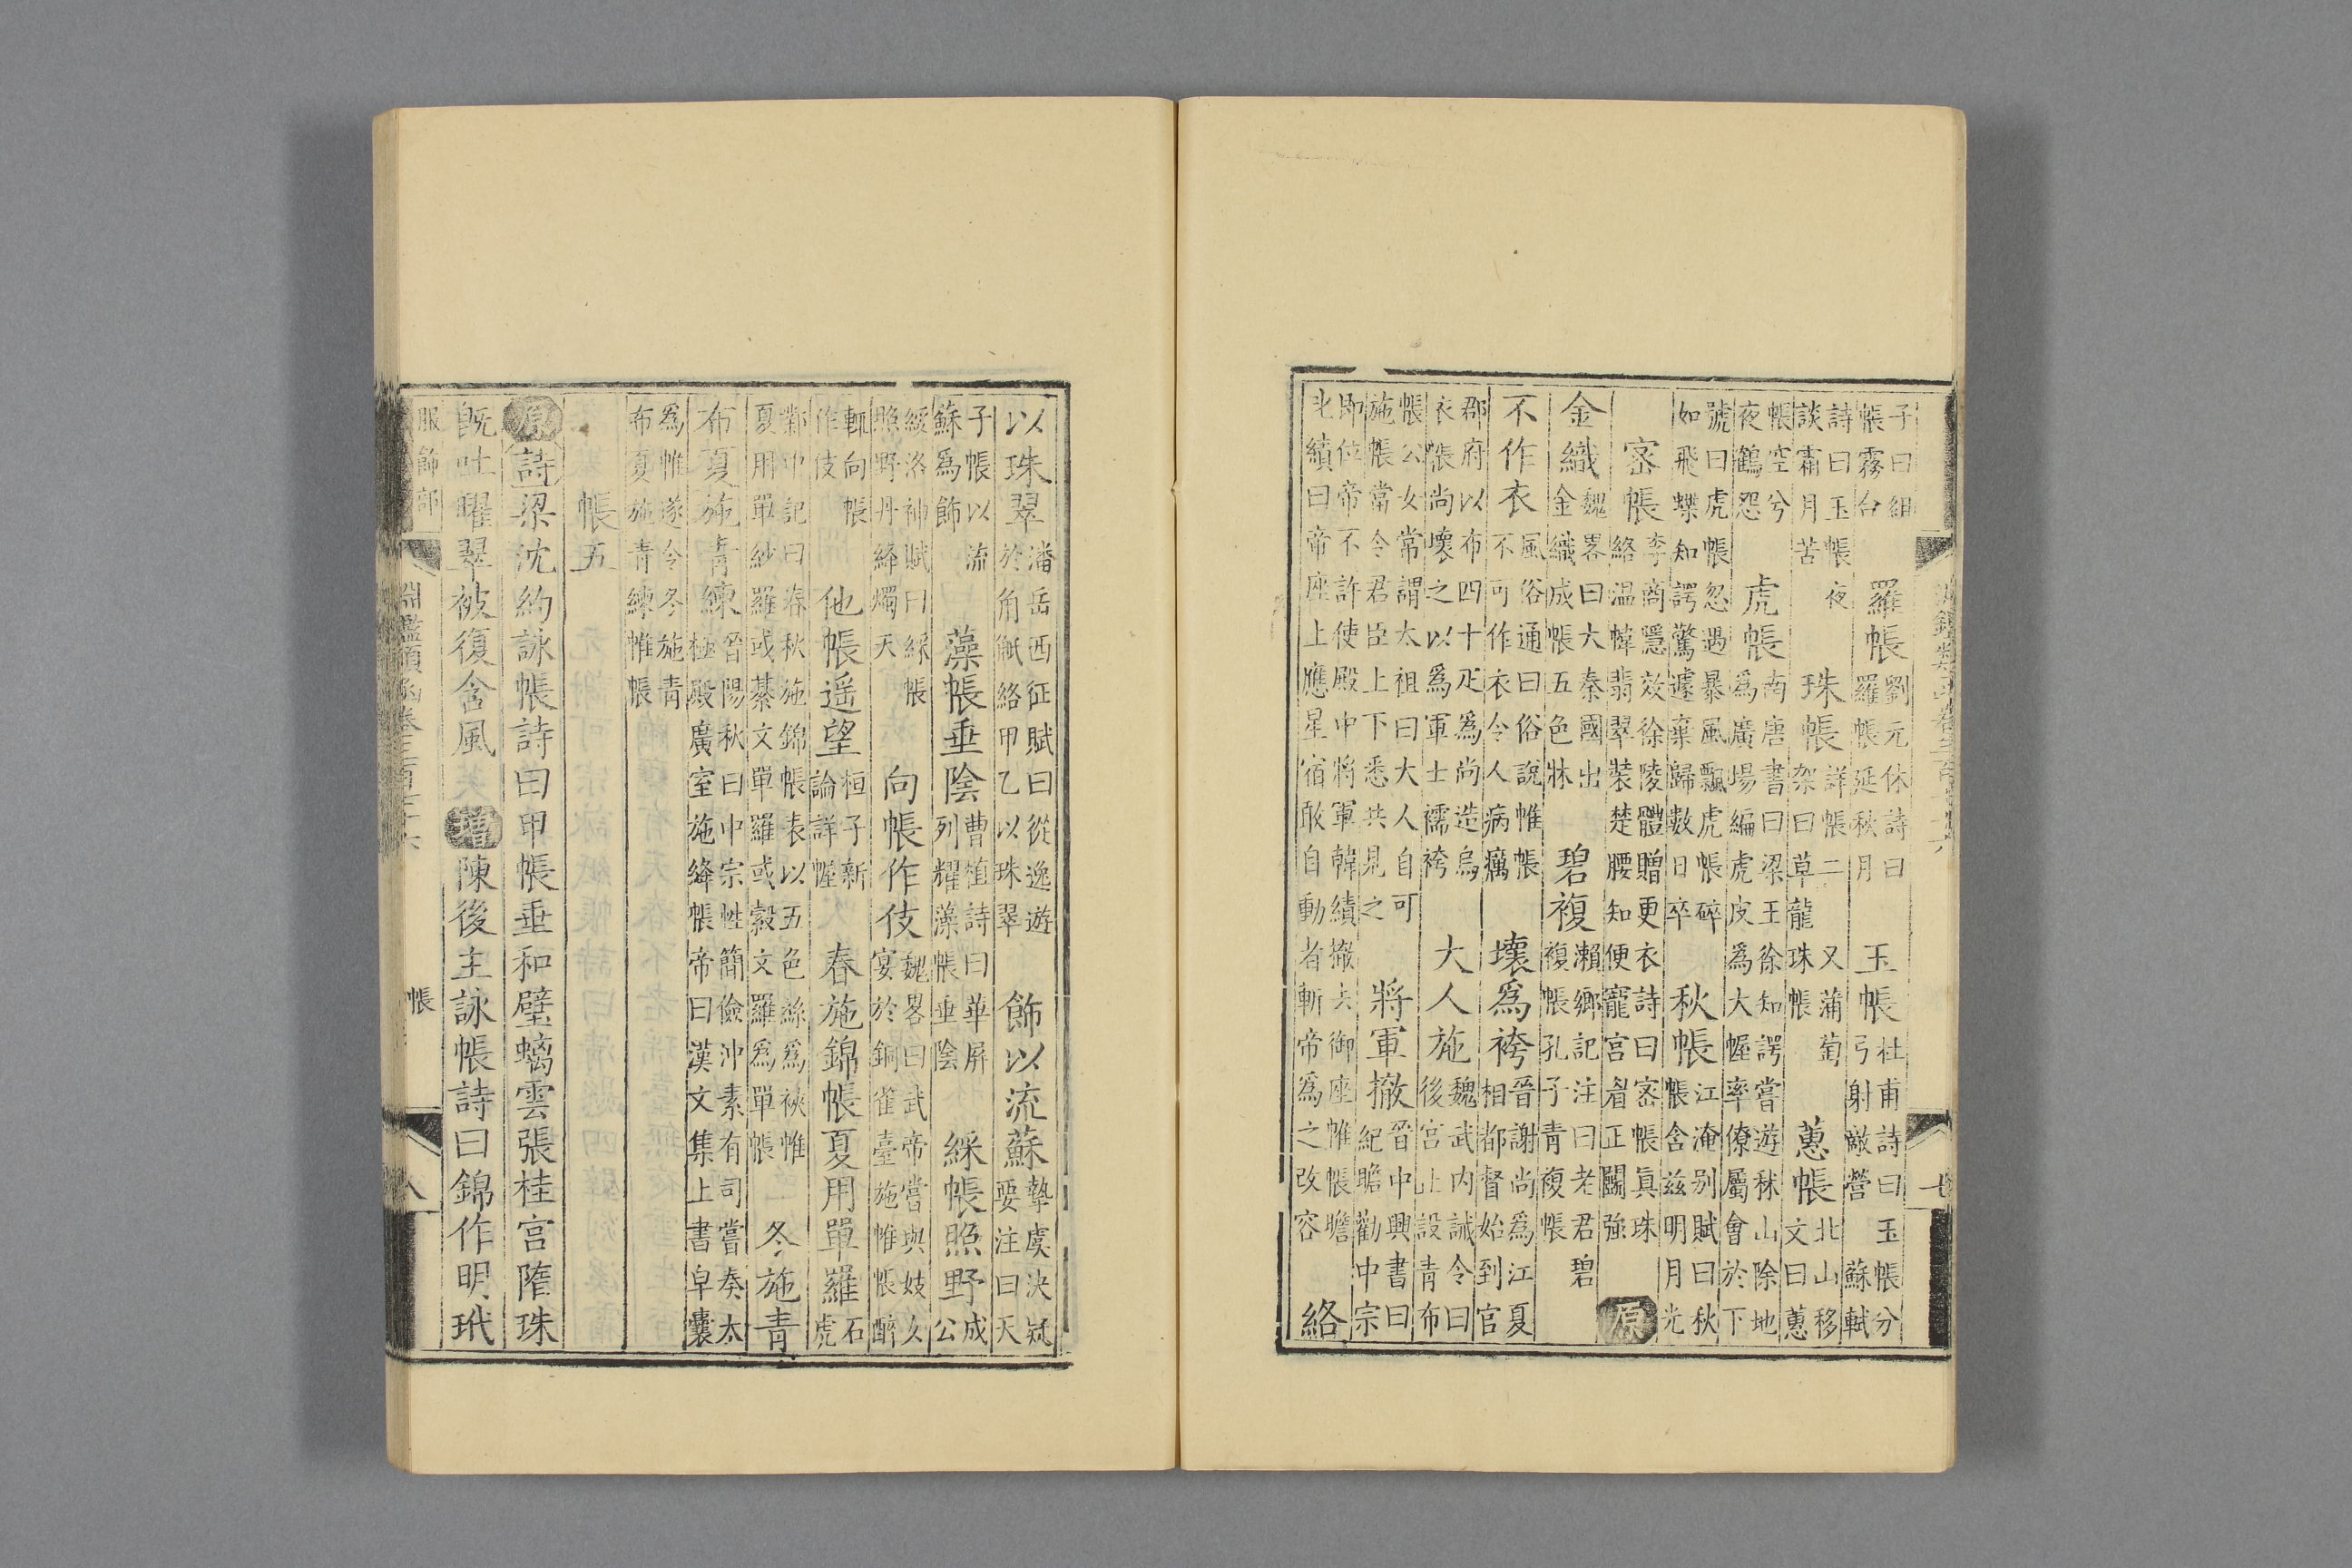 子曰組帳霧合　羅帳劉元休詩曰羅帳延秋月　玉帳杜甫詩曰玉帳分弓射敵營　蘇軾
詩曰玉帳夜談霜月苦　珠帳詳帳二　又蒲萄架曰草龍珠帳　蕙帳北山移文曰蕙
帳空兮夜鶴怨　虎帳南唐書曰梁王徐知諤嘗遊秣山除地爲廣場編虎皮爲大幄率僚屬會於下
號曰虎帳忽遇暴風飄虎帳碎如飛蝶知諤驚遽棄歸數日卒　秋帳江淹別賦曰秋帳含兹明月光
宻帳李商隱效徐陵體贈更衣詩曰宻帳眞珠絡温幃翡翠裝楚腰知便寵宮眉正鬭強　原
金織魏畧曰大秦國出金織成帳五色牀　碧複瀨鄉記注曰老君碧複帳孔子青複帳
不作衣風俗通曰俗說帷帳不可作衣令人病癘　壞爲袴晉謝尚爲江夏相都督始到官
郡府以布四十疋爲尚造烏衣帳尚壞之以爲軍士襦袴　大人施魏武内誡令曰後宮止設青布
帳公女常謂太祖曰大人自可施帳當令君臣上下悉共見之　將軍撤晉中興書曰紀瞻勸中宗
即位帝不許使殿中將軍韓績撤去御座帷帳瞻叱績曰帝座上應星宿敢自動者斬帝爲之改容　絡
以珠翠潘岳西征賦曰從逸遊於角觝絡甲乙以珠翠　飾以流蘇摯虞決疑要注曰天
子帳以流蘇爲飾　藻帳垂陰曹植詩曰華屏列耀藻帳垂陰　綵帳照野成公
綏洛神賦曰綵帳照野丹絳燭天　向帳作伎魏畧曰武帝嘗與妓女宴於銅雀臺施帷帳醉
輒向帳作伎　他帳遥望桓子新論詳幄　春施錦帳夏用單羅石虎
鄴中記曰春秋施錦帳表以五色絲爲裌帷夏用單紗羅或綦文單羅或縠文羅爲單帳　冬施青
布夏施青練晉陽秋曰中宗性簡儉沖素有司嘗奏太極殿廣室施絳帳帝曰漢文集上書皁囊
爲帷遂令冬施青布夏施青練帷帳
帳五
原詩梁沈約詠帳詩曰甲帳垂和璧螭雲張桂宮隨珠
旣吐曜翠被復含風　增陳後主詠帳詩曰錦作明玳
服飾部　淵鑑類函卷三百七十六　帳　八